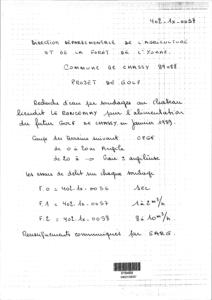 402-1X-0057
DIRECTION DEPARTEMENTALE DE L'AGRICULTURE
ET DE LA FORET DE L'YONNE.
COMMUNE DE CHASSY 89088
PROJET DE GOLF
Recherche d'eau par sondages au chateau
lieudit LE RONCEMAY pour l'alimentation
du futur GOLF DE CHASSY en janvier 1989.
Coupe des terrains suivant
de 0 à 20 m Argile
de 20 à → Craie à
Les essais de debit sur chaque sondage
F.0 = 402-1X-0056 SEC
F.1 = 402-1X-0057 1 à 2 m3/h
F.2 = 402-1X-0058 8 à 10 m3/h
Renseignements communiqués par